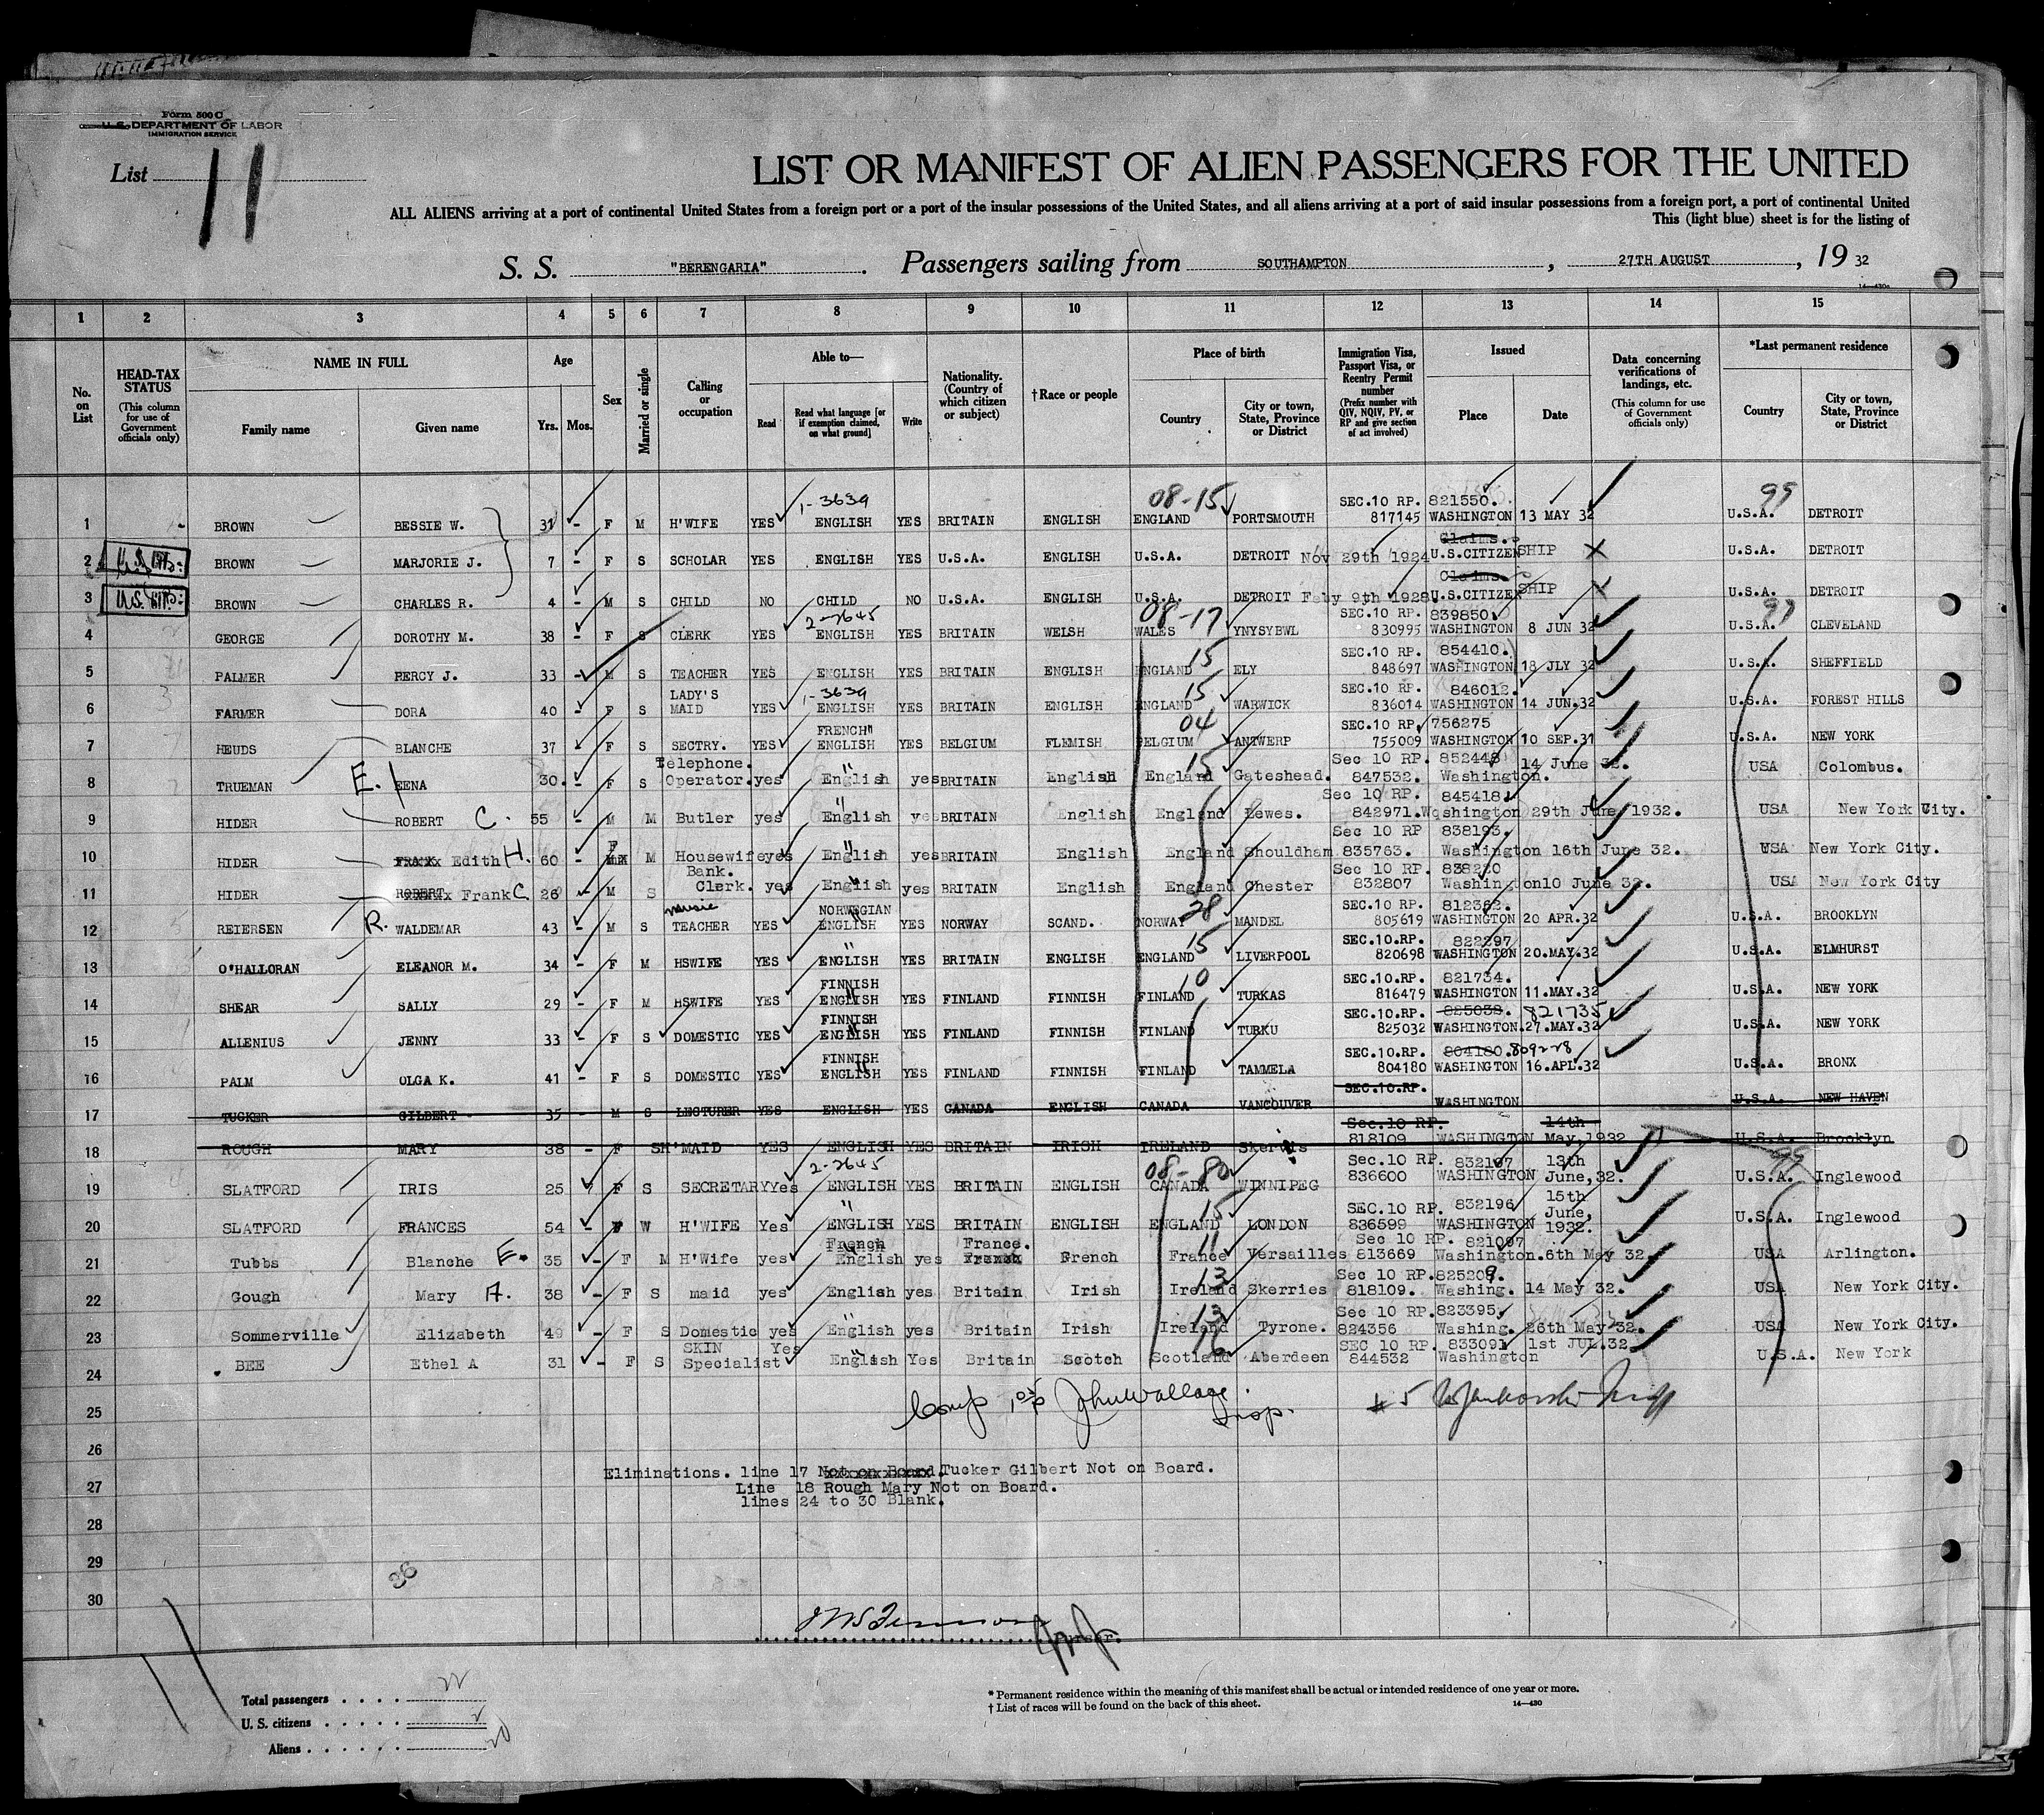 Form 500 C
U. S. DEPARTMENT OF LABOR
IMMIGRATION SERVICE
List 11
LIST OR MANIFEST OF ALIEN PASSENGERS FOR THE UNITED
ALL ALIENS arriving at a port of continental United States from a foreign port or a port of the insular possessions of the United States, and all aliens arriving at a port of said insular possessions from a foreign port, a port of continental United
This (light blue) sheet is for the listing of
S. S. "BERENGARIA". Passengers sailing from SOUTHAMPTON, 27TH AUGUST, 19 32
14—430a
1 2 3 4 5 6 7 8 9 10 11 12 13 14 15
No. on List
HEAD-TAX STATUS (This column for use of Government officials only)
NAME IN FULL Family name Given name
Age Yrs. Mos.
Sex
Married or single
Calling or occupation
Able to— Read Read what language [or if exemption claimed, on what ground] Write
Nationality. (Country of which citizen or subject)
†Race or people
Place of birth Country City or town, State, Province or District
Immigration Visa, Passport Visa, or Reentry Permit number (Prefix number with QIV, NQIV, PV, or RP and give section of act involved)
Issued Place Date
Data concerning verifications of landings, etc. (This column for use of Government officials only)
*Last permanent residence Country City or town, State, Province or District
1-3639 08-15 SEC.10 RP. 821550. 99
1 BROWN BESSIE W. 31 - F M H'WIFE YES ENGLISH YES BRITAIN ENGLISH ENGLAND PORTSMOUTH 817145 WASHINGTON 13 MAY 32 U.S.A. DETROIT
Claims.
2 U.S. Ctz. BROWN MARJORIE J. 7 - F S SCHOLAR YES ENGLISH YES U.S.A. ENGLISH U.S.A. DETROIT Nov 29th 1924 U.S.CITIZENSHIP X U.S.A. DETROIT
Claims.
3 U.S. CTZ. BROWN CHARLES R. 4 - M S CHILD NO CHILD NO U.S.A. ENGLISH U.S.A. DETROIT Feby 9th 1928 U.S.CITIZENSHIP X U.S.A. DETROIT
2-2645 08-17 SEC.10 RP. 839850 99
4 GEORGE DOROTHY M. 38 - F S CLERK YES ENGLISH YES BRITAIN WELSH WALES YNYSYBWL 830995 WASHINGTON 8 JUN 32 U.S.A. CLEVELAND
15 SEC.10 RP. 854410.
5 PALMER PERCY J. 33 - M S TEACHER YES ENGLISH YES BRITAIN ENGLISH ENGLAND ELY 848697 WASHINGTON 18 JLY 32 U.S.A. SHEFFIELD
LADY'S 1-3639 15 SEC.10 RP. 846012.
6 FARMER DORA 40 - F S MAID YES ENGLISH YES BRITAIN ENGLISH ENGLAND WARWICK 836014 WASHINGTON 14 JUN.32 U.S.A. FOREST HILLS
FRENCH" 04 SEC.10 RP. 756275
7 HEUDS BLANCHE 37 - F S SECTRY. YES ENGLISH YES BELGIUM FLEMISH BELGIUM ANTWERP 755009 WASHINGTON 10 SEP.31 U.S.A. NEW YORK
Telephone. " 15 Sec 10 RP. 852448
8 TRUEMAN E. EENA 30. - F S Operator. yes English yes BRITAIN English England Gateshead. 847532. Washington. 14 June 32. USA Colombus.
" Sec 10 RP. 845418.
9 HIDER ROBERT C. 55 - M M Butler yes English yes BRITAIN English England Lewes. 842971. Washington 29th June 1932. USA New York City.
F " Sec 10 RP 838193.
10 HIDER Edith H. 60 - M Housewife yes English yes BRITAIN English England Shouldham 835763. Washington 16th June 32. USA New York City.
Bank. " Sec 10 RP. 838220
11 HIDER ROBERT Frank C. 26 - M S Clerk. yes English yes BRITAIN English England Chester 832807 Washington 10 June 32. USA New York City
music NORWEGIAN 28 SEC.10 RP. 812382.
12 REIERSEN R. WALDEMAR 43 - M S TEACHER YES ENGLISH YES NORWAY SCAND. NORWAY MANDEL 805619 WASHINGTON 20 APR.32 U.S.A. BROOKLYN
" 15 SEC.10.RP. 822297
13 O'HALLORAN ELEANOR M. 34 - F M HSWIFE YES ENGLISH YES BRITAIN ENGLISH ENGLAND LIVERPOOL 820698 WASHINGTON 20.MAY.32 U.S.A. ELMHURST
FINNISH 10 SEC.10.RP. 821734.
14 SHEAR SALLY 29 - F M HSWIFE YES ENGLISH YES FINLAND FINNISH FINLAND TURKAS 816479 WASHINGTON 11.MAY.32 U.S.A. NEW YORK
FINNISH SEC.10.RP. 825032. 821735
15 ALLENIUS JENNY 33 - F S DOMESTIC YES ENGLISH YES FINLAND FINNISH FINLAND TURKU 825032 WASHINGTON.27.MAY.32 U.S.A. NEW YORK
FINNISH SEC.10.RP. 804180. 809228
16 PALM OLGA K. 41 - F S DOMESTIC YES ENGLISH YES FINLAND FINNISH FINLAND TAMMELA 804180 WASHINGTON 16.APL.32 U.S.A. BRONX
SEC.10.RP.
17 TUCKER GILBERT 35 - M S LECTURER YES ENGLISH YES CANADA ENGLISH CANADA VANCOUVER WASHINGTON U.S.A. NEW HAVEN
Sec.10 RP. 14th
18 ROUGH MARY 38 - F S H'MAID YES ENGLISH YES BRITAIN IRISH IRELAND Skerries 818109 WASHINGTON May,1932 U.S.A. Brooklyn
2-2645 08-80 Sec.10 RP. 832197 13th 99
19 SLATFORD IRIS 25 F S SECRETARY Yes ENGLISH YES BRITAIN ENGLISH CANADA WINNIPEG 836600 WASHINGTON June,32. U.S.A. Inglewood
" 15 SEC.10 RP. 832196 15th June,
20 SLATFORD FRANCES 54 - F W H'WIFE Yes ENGLISH YES BRITAIN ENGLISH ENGLAND LONDON 836599 WASHINGTON 1932. U.S.A. Inglewood
French France. 11 Sec 10 RP. 821097
21 Tubbs Blanche E. 35 - F M H'Wife yes English yes French French France Versailles 813669 Washington. 6th May 32. USA Arlington.
13 Sec 10 RP. 825209.
22 Gough Mary A. 38 - F S maid yes English yes Britain Irish Ireland Skerries 818109. Washing. 14 May 32. USA New York City.
" 13 Sec 10 RP. 823395.
23 Sommerville Elizabeth 49 - F S Domestic yes English yes Britain Irish Ireland Tyrone. 824356 Washing. 26th May 32. USA New York City.
SKIN Yes " 16 SEC 10 RP. 833091 1st JUL.32.
24 BEE Ethel A 31 - F S Specialist English Yes Britain Scotch Scotland Aberdeen 844532 Washington U.S.A. New York
John Wallace. Insp.
25
26
27
28
29
30
Eliminations. line 17 Not on Board. Tucker Gilbert Not on Board.
Line 18 Rough Mary Not on Board.
lines 24 to 30 Blank.
36
Purser.
Total passengers 22
U. S. citizens 2
Aliens 20
* Permanent residence within the meaning of this manifest shall be actual or intended residence of one year or more.
† List of races will be found on the back of this sheet. 14—430